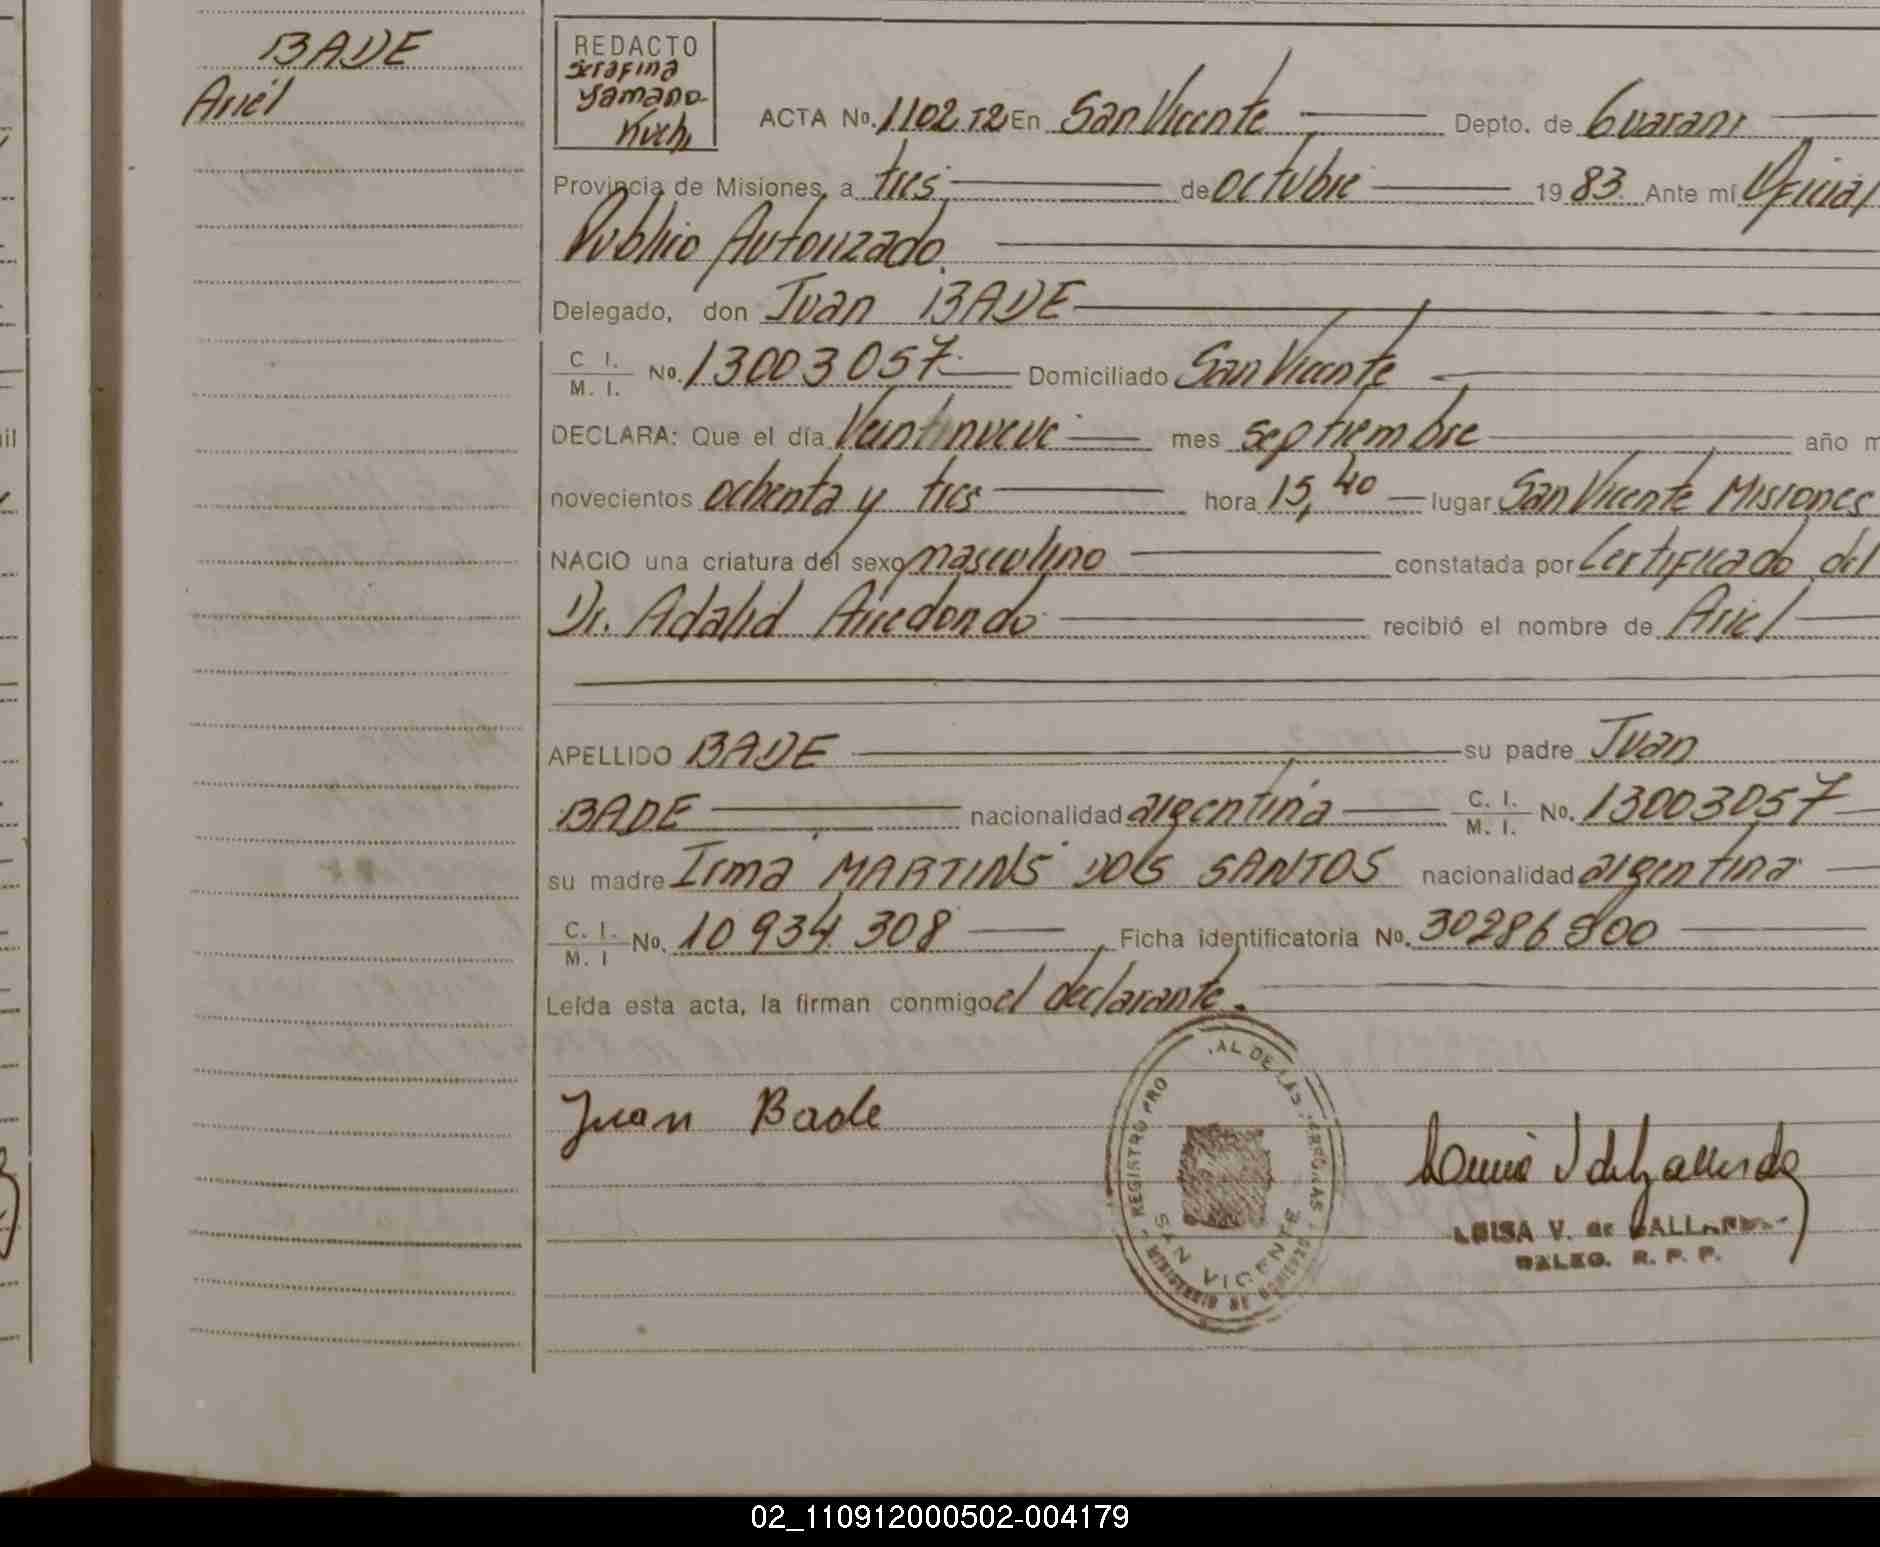 BADE
Ariel
REDACTO
Serafina
Yamano-
ACTA No. 1102 T2 En San Vicente Depto. de Guarani
Provincia de Misiones, a tres de octubre 1983. Ante mí Oficial
Publico Autorizado.
Delegado, don Juan BADE
C I. / M. I. No. 13003057 Domiciliado San Vicente
DECLARA: Que el día Veintinueve mes septiembre año m
novecientos ochenta y tres hora 15,40 lugar San Vicente Misiones
NACIO una criatura del sexo masculino constatada por Certificado del
Dr. Adalid Arredondo recibió el nombre de Ariel
APELLIDO BADE su padre Juan
BADE nacionalidad argentina C. I. / M. I. No. 13003057
su madre Irma MARTINS DOS SANTOS nacionalidad argentina
C. I. / M. I No. 10934308 Ficha identificatoria No. 30286900
Leída esta acta, la firman conmigo el declarante.
Juan Bade
REGISTRO PRO AL DE LAS PERSONAS
SAN VICENTE
LUISA V. de GALLARDO
DALEG. R. P. P.
02_110912000502-004179